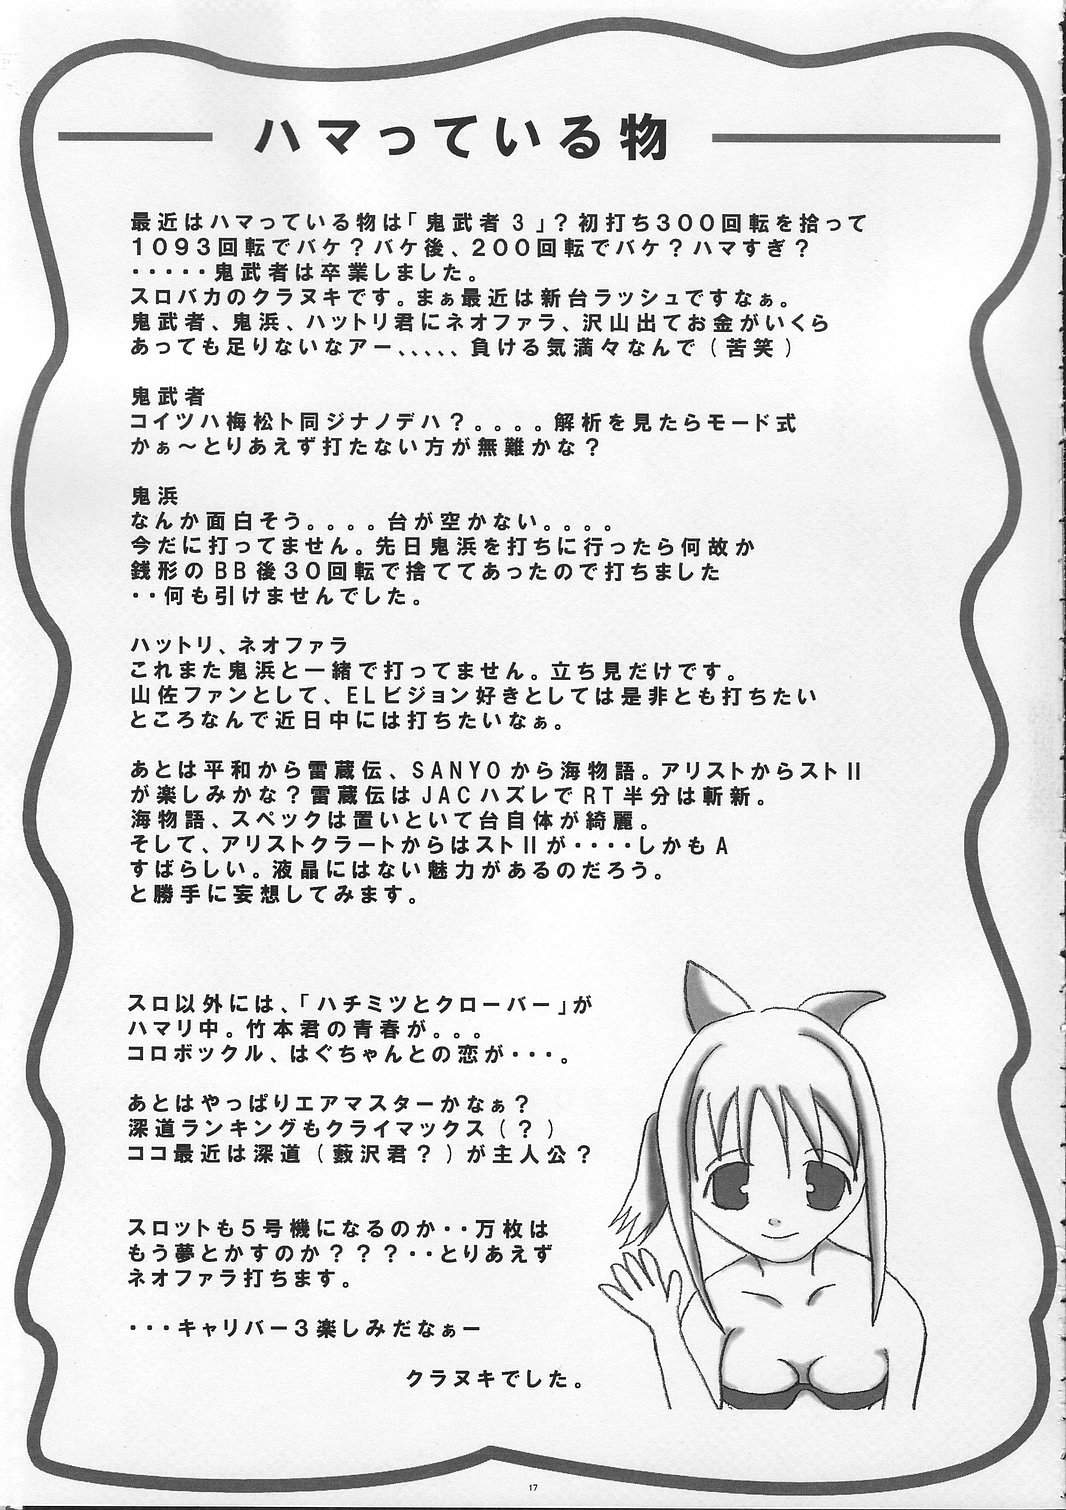 ハマっている物
最近はハマっている物は「鬼武者３」？初打ち３００回転を拾って
１０９３回転でバケ？バケ後、２００回転でバケ？ハマすぎ？
・・・・・鬼武者は卒業しました。
スロバカのクラヌキです。まぁ最近は新台ラッシュですなぁ。
鬼武者、鬼浜、ハットリ君にネオファラ、沢山出てお金がいくら
あっても足りないなアー、、、、、負ける気満々なんで（苦笑）
鬼武者
コイツハ梅松ト同ジナノデハ？。。。。解析を見たらモード式
かぁ～とりあえず打たない方が無難かな？
鬼浜
なんか面白そう。。。。台が空かない。。。。
今だに打ってません。先日鬼浜を打ちに行ったら何故か
銭形のＢＢ後３０回転で捨ててあったので打ちました
・・何も引けませんでした。
ハットリ、ネオファラ
これまた鬼浜と一緒で打ってません。立ち見だけです。
山佐ファンとして、ELビジョン好きとしては是非とも打ちたい
ところなんで近日中には打ちたいなぁ。
あとは平和から雷蔵伝、SANYOから海物語。アリストからストⅡ
が楽しみかな？雷蔵伝はJACハズレでRT半分は斬新。
海物語、スペックは置いといて台自体が綺麗。
そして、アリストクラートからはストⅡが・・・・しかもA
すばらしい。液晶にはない魅力があるのだろう。
と勝手に妄想してみます。
スロ以外には、「ハチミツとクローバー」が
ハマリ中。竹本君の青春が。。。
コロボックル、はぐちゃんとの恋が・・・。
あとはやっぱりエアマスターかなぁ？
深道ランキングもクライマックス（？）
ココ最近は深道（藪沢君？）が主人公？
スロットも５号機になるのか・・万枚は
もう夢とかすのか？？？・・とりあえず
ネオファラ打ちます。
・・・キャリバー３楽しみだなぁー
クラヌキでした。
17